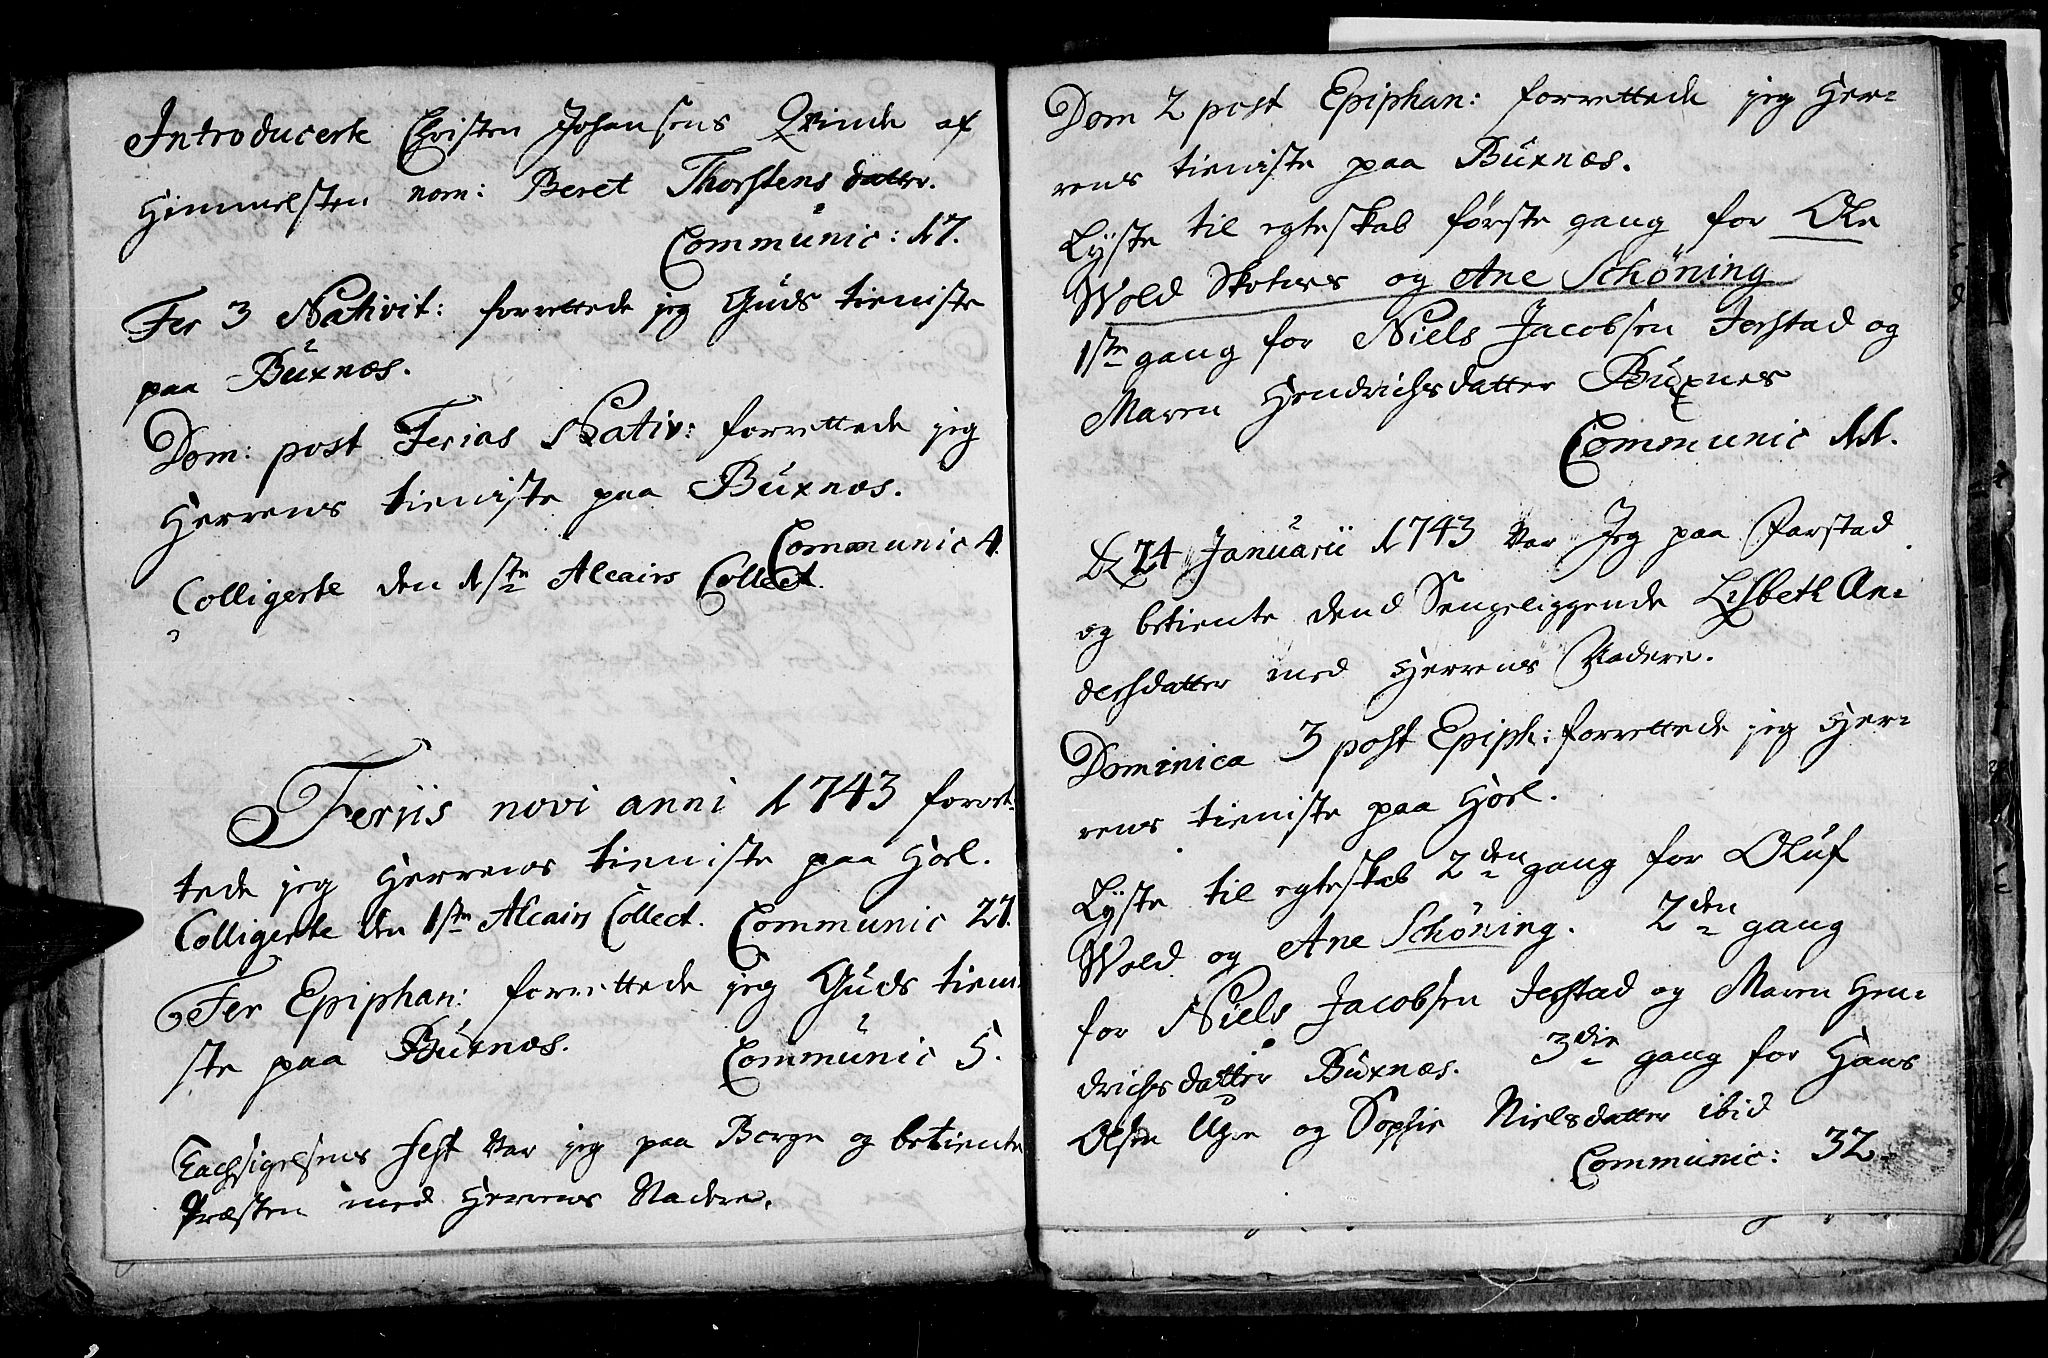 Introducerte Christen Johansens Qvinde af
Himmelsten nom: Beret Thorstens datter.
Communic: 17.
Fer 3 Nativit: forrettede jeg Guds tieniste
paa Buxnæs.
Dom: post Ferias Nativ: forrettede jeg
Herrens tieniste paa Buxnæs.
Communic 4.
Colligerte den 1ste Alcairs Collect.
Feriis novi anni 1743 forret-
tede jeg Herrens tieniste paa Hoel.
Colligerte den 1ste Alcairs Collect. Communic 27.
Fer Epiphan: forrettede jeg Guds tieni-
ste paa Buxnæs.
Communic 5.
Tachsigelsens Fest Var jeg paa Borge og betiente
Præsten med Herrens Nadere.
Dom 2 post Epiphan: forrettede jeg Her-
rens tieniste paa Buxnæs.
Lyste til egteskab første gang for Ole
Wold og Ane Schöning
1ste gang for Niels Jacobsen Jerstad og
Maren Hendrichsdatter Buxnes
Communic 11.
D 24 Januarii 1743 Var Jeg paa Farstad
og betiente dend Sengeliggende Lisbeth An-
dersdatter med Herrens Nadere.
Dominica 3 post Epiph: forrettede jeg Her-
rens tieniste paa Hoel.
Lyste til egteskab 2den gang for Oluf
Wold og Ane Schöning. 2den gang
for Niels Jacobsen Jerstad og Maren Hen-
drichsdatter Buxnæs. 3die gang for Hans
Olsen og Sophie Nielsdatter ibid
Communic: 32.